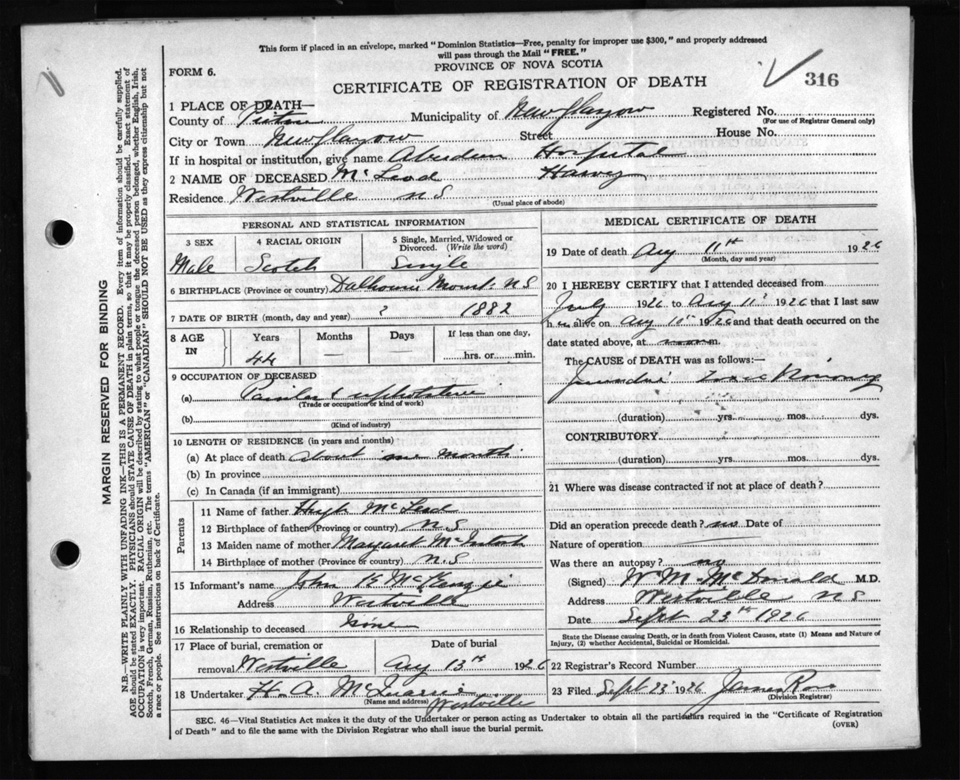 This form if placed in an envelope, marked "Dominion Statistics—Free, penalty for improper use $300," and properly addressed
will pass through the Mail "FREE."
PROVINCE OF NOVA SCOTIA
FORM 6.
CERTIFICATE OF REGISTRATION OF DEATH
316
1 PLACE OF DEATH—
County of Pictou Municipality of New Glasgow Registered No.
(For use of Registrar General only)
City or Town New Glasgow Street House No.
If in hospital or institution, give name Aberdeen Hospital
2 NAME OF DECEASED McLeod Harvey
Residence Westville NS
(Usual place of abode)
PERSONAL AND STATISTICAL INFORMATION
3 SEX 4 RACIAL ORIGIN 5 Single, Married, Widowed or Divorced. (Write the word)
Male Scotch Single
6 BIRTHPLACE (Province or country) Dalhousie Mount. NS
7 DATE OF BIRTH (month, day and year) ? 1882
8 AGE IN Years Months Days If less than one day,
44 — — hrs. or min.
9 OCCUPATION OF DECEASED
(a) Painter & upholsterer
(Trade or occupation or kind of work)
(b)
(Kind of industry)
10 LENGTH OF RESIDENCE (in years and months)
(a) At place of death About one month
(b) In province
(c) In Canada (if an immigrant)
Parents
11 Name of father Hugh McLeod
12 Birthplace of father (Province or country) N.S
13 Maiden name of mother Margaret McIntosh
14 Birthplace of mother (Province or country) N.S
15 Informant's name John McKenzie
Address Westville
16 Relationship to deceased
17 Place of burial, cremation or Date of burial
removal Westville Aug 13th 1926
18 Undertaker H. A. McQuarrie
(Name and address) Westville
MEDICAL CERTIFICATE OF DEATH
19 Date of death Aug 11th 1926
(Month, day and year)
20 I HEREBY CERTIFY that I attended deceased from
July 1926 to Aug 11 1926 that I last saw
h im alive on Aug 11th 1926 and that death occurred on
the date stated above, at m.
The CAUSE of DEATH was as follows:—
Jaundice
(duration) yrs. mos. dys.
CONTRIBUTORY
(duration) yrs. mos. dys.
21 Where was disease contracted if not at place of death?
Did an operation precede death? no Date of
Nature of operation
Was there an autopsy? no
(Signed) W M McDonald M.D.
Address Westville NS
Date Sept 23rd 1926
State the Disease causing Death, or in death from Violent Causes, state (1) Means and Nature of
Injury, (2) whether Accidental, Suicidal or Homicidal.
22 Registrar's Record Number
23 Filed Sept 23 1926 James Ross
(Division Registrar)
SEC. 46—Vital Statistics Act makes it the duty of the Undertaker or person acting as Undertaker to obtain all the particulars required in the "Certificate of Registration
of Death" and to file the same with the Division Registrar who shall issue the burial permit.
(OVER)
MARGIN RESERVED FOR BINDING
N.B.—WRITE PLAINLY WITH UNFADING INK—THIS IS A PERMANENT RECORD. Every item of information should be carefully supplied.
AGE should be stated EXACTLY. PHYSICIANS should STATE CAUSE OF DEATH in plain terms, so that it may be properly classified. Exact statement of
OCCUPATION is very important. RACIAL ORIGIN will be described by stating to what people or tongue the deceased person belonged, whether English, Irish,
Scotch, French, German, Russian, Ruthenian, etc. The terms "AMERICAN" or "CANADIAN" SHOULD NOT BE USED as they express citizenship but not
a race or people. See instructions on back of Certificate.